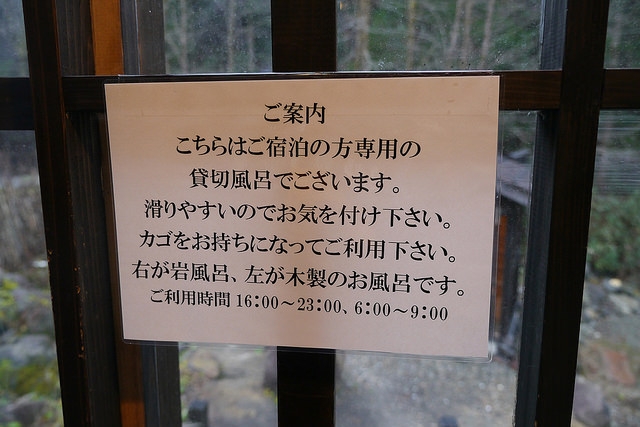 ご案内
こちらはご宿泊の方専用の
貸切風呂でございます。
滑りやすいのでお気を付け下さい。
カゴをお持ちになってご利用下さい。
右が岩風呂、左が木製のお風呂です。
ご利用時間 16:00～23:00、6:00～9:00